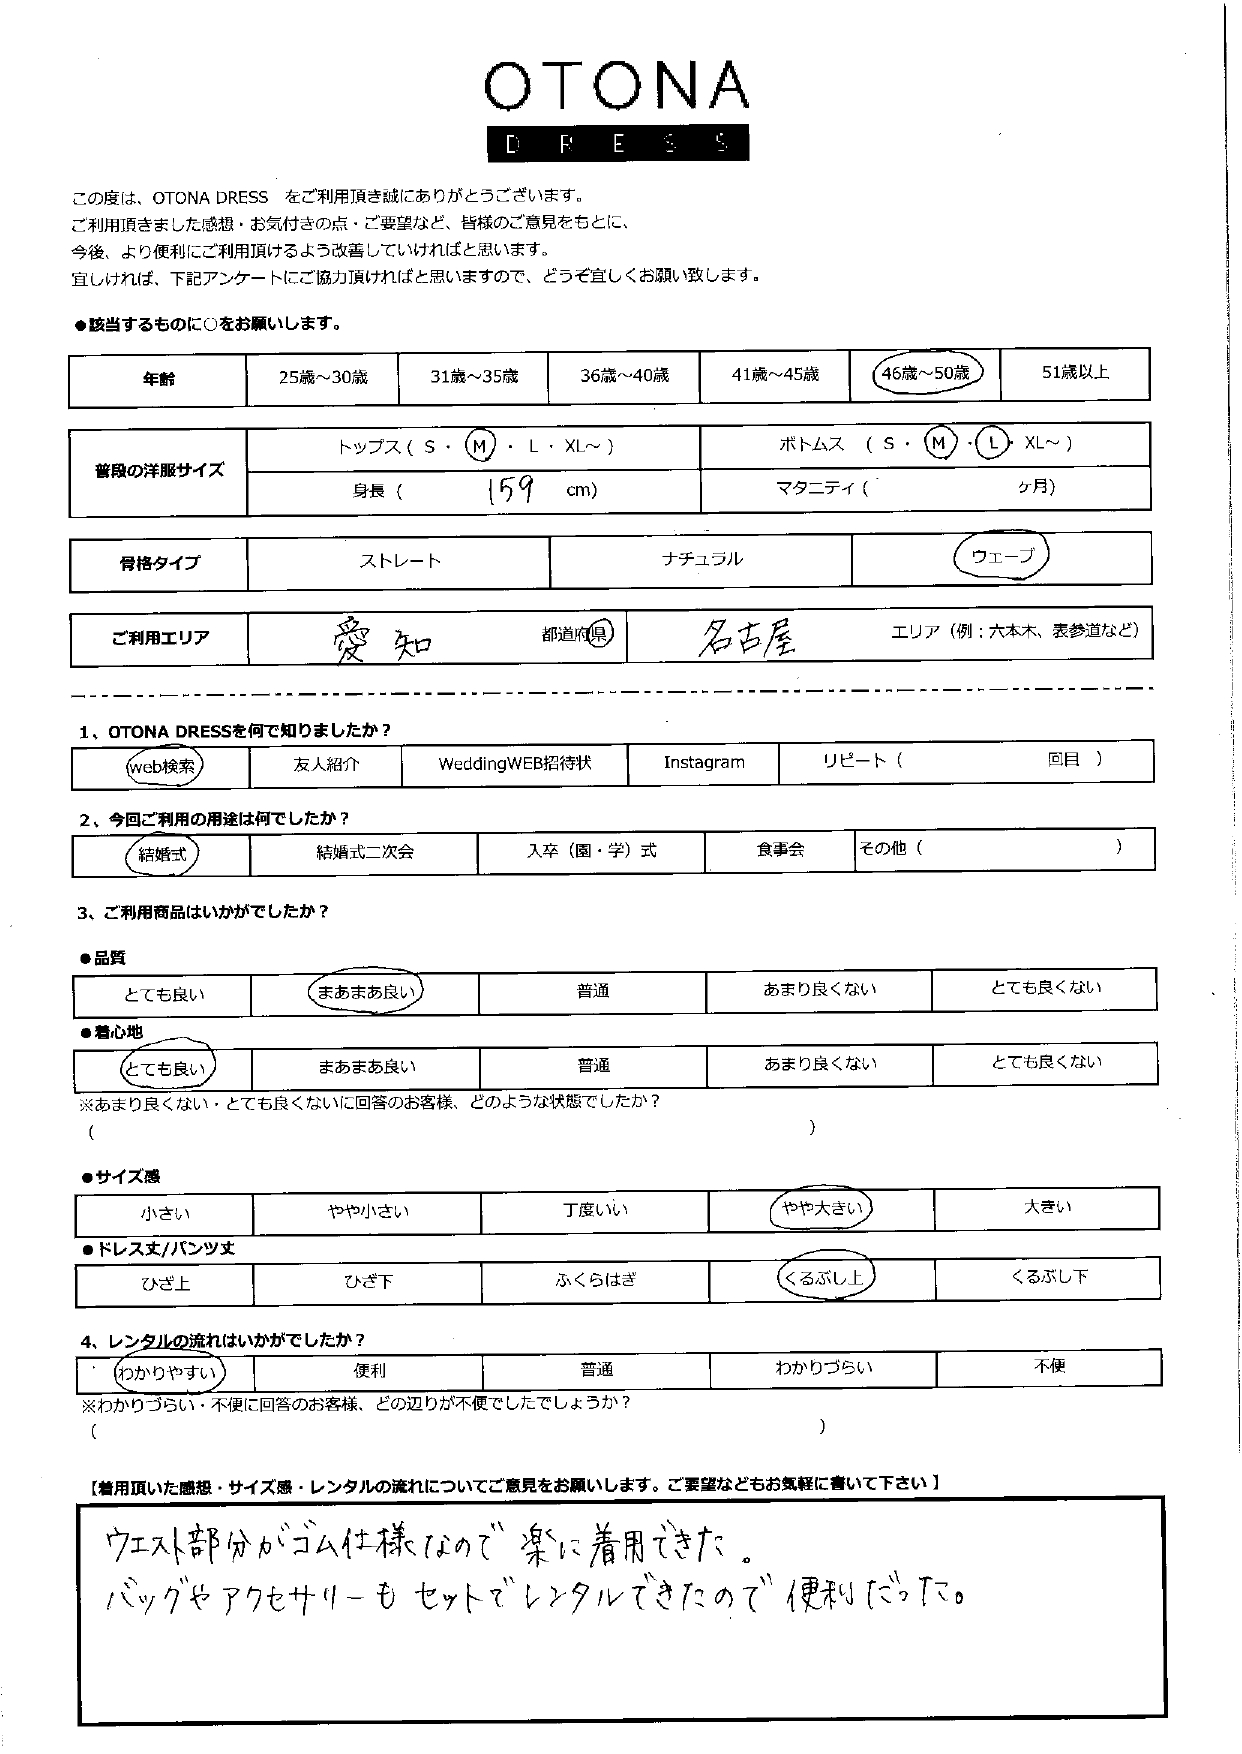 OTONA
DRESS
この度は、OTONA DRESS をご利用頂き誠にありがとうございます。
ご利用頂きました感想・お気付きの点・ご要望など、皆様のご意見をもとに、
今後、より便利にご利用頂けるよう改善していければと思います。
宜しければ、下記アンケートにご協力頂ければと思いますので、どうぞ宜しくお願い致します。
●該当するものに○をお願いします。
年齢 25歳～30歳 31歳～35歳 36歳～40歳 41歳～45歳 46歳～50歳 51歳以上
普段の洋服サイズ トップス ( S ・ M ・ L ・ XL～ ) ボトムス ( S ・ M ・ L ・ XL～ )
身長 ( 159 cm) マタニティ ( ヶ月)
骨格タイプ ストレート ナチュラル ウェーブ
ご利用エリア 愛知 都道府県 名古屋 エリア（例：六本木、表参道など）
1、OTONA DRESSを何で知りましたか？
web検索 友人紹介 WeddingWEB招待状 Instagram リピート ( 回目 )
2、今回ご利用の用途は何でしたか？
結婚式 結婚式二次会 入卒（園・学）式 食事会 その他 ( )
3、ご利用商品はいかがでしたか？
●品質
とても良い まあまあ良い 普通 あまり良くない とても良くない
●着心地
とても良い まあまあ良い 普通 あまり良くない とても良くない
※あまり良くない・とても良くないに回答のお客様、どのような状態でしたか？
( )
●サイズ感
小さい やや小さい 丁度いい やや大きい 大きい
●ドレス丈/パンツ丈
ひざ上 ひざ下 ふくらはぎ くるぶし上 くるぶし下
4、レンタルの流れはいかがでしたか？
わかりやすい 便利 普通 わかりづらい 不便
※わかりづらい・不便に回答のお客様、どの辺りが不便でしたでしょうか？
( )
【着用頂いた感想・サイズ感・レンタルの流れについてご意見をお願いします。ご要望などもお気軽に書いて下さい】
ウエスト部分がゴム仕様なので楽に着用できた。
バッグやアクセサリーもセットでレンタルできたので便利だった。